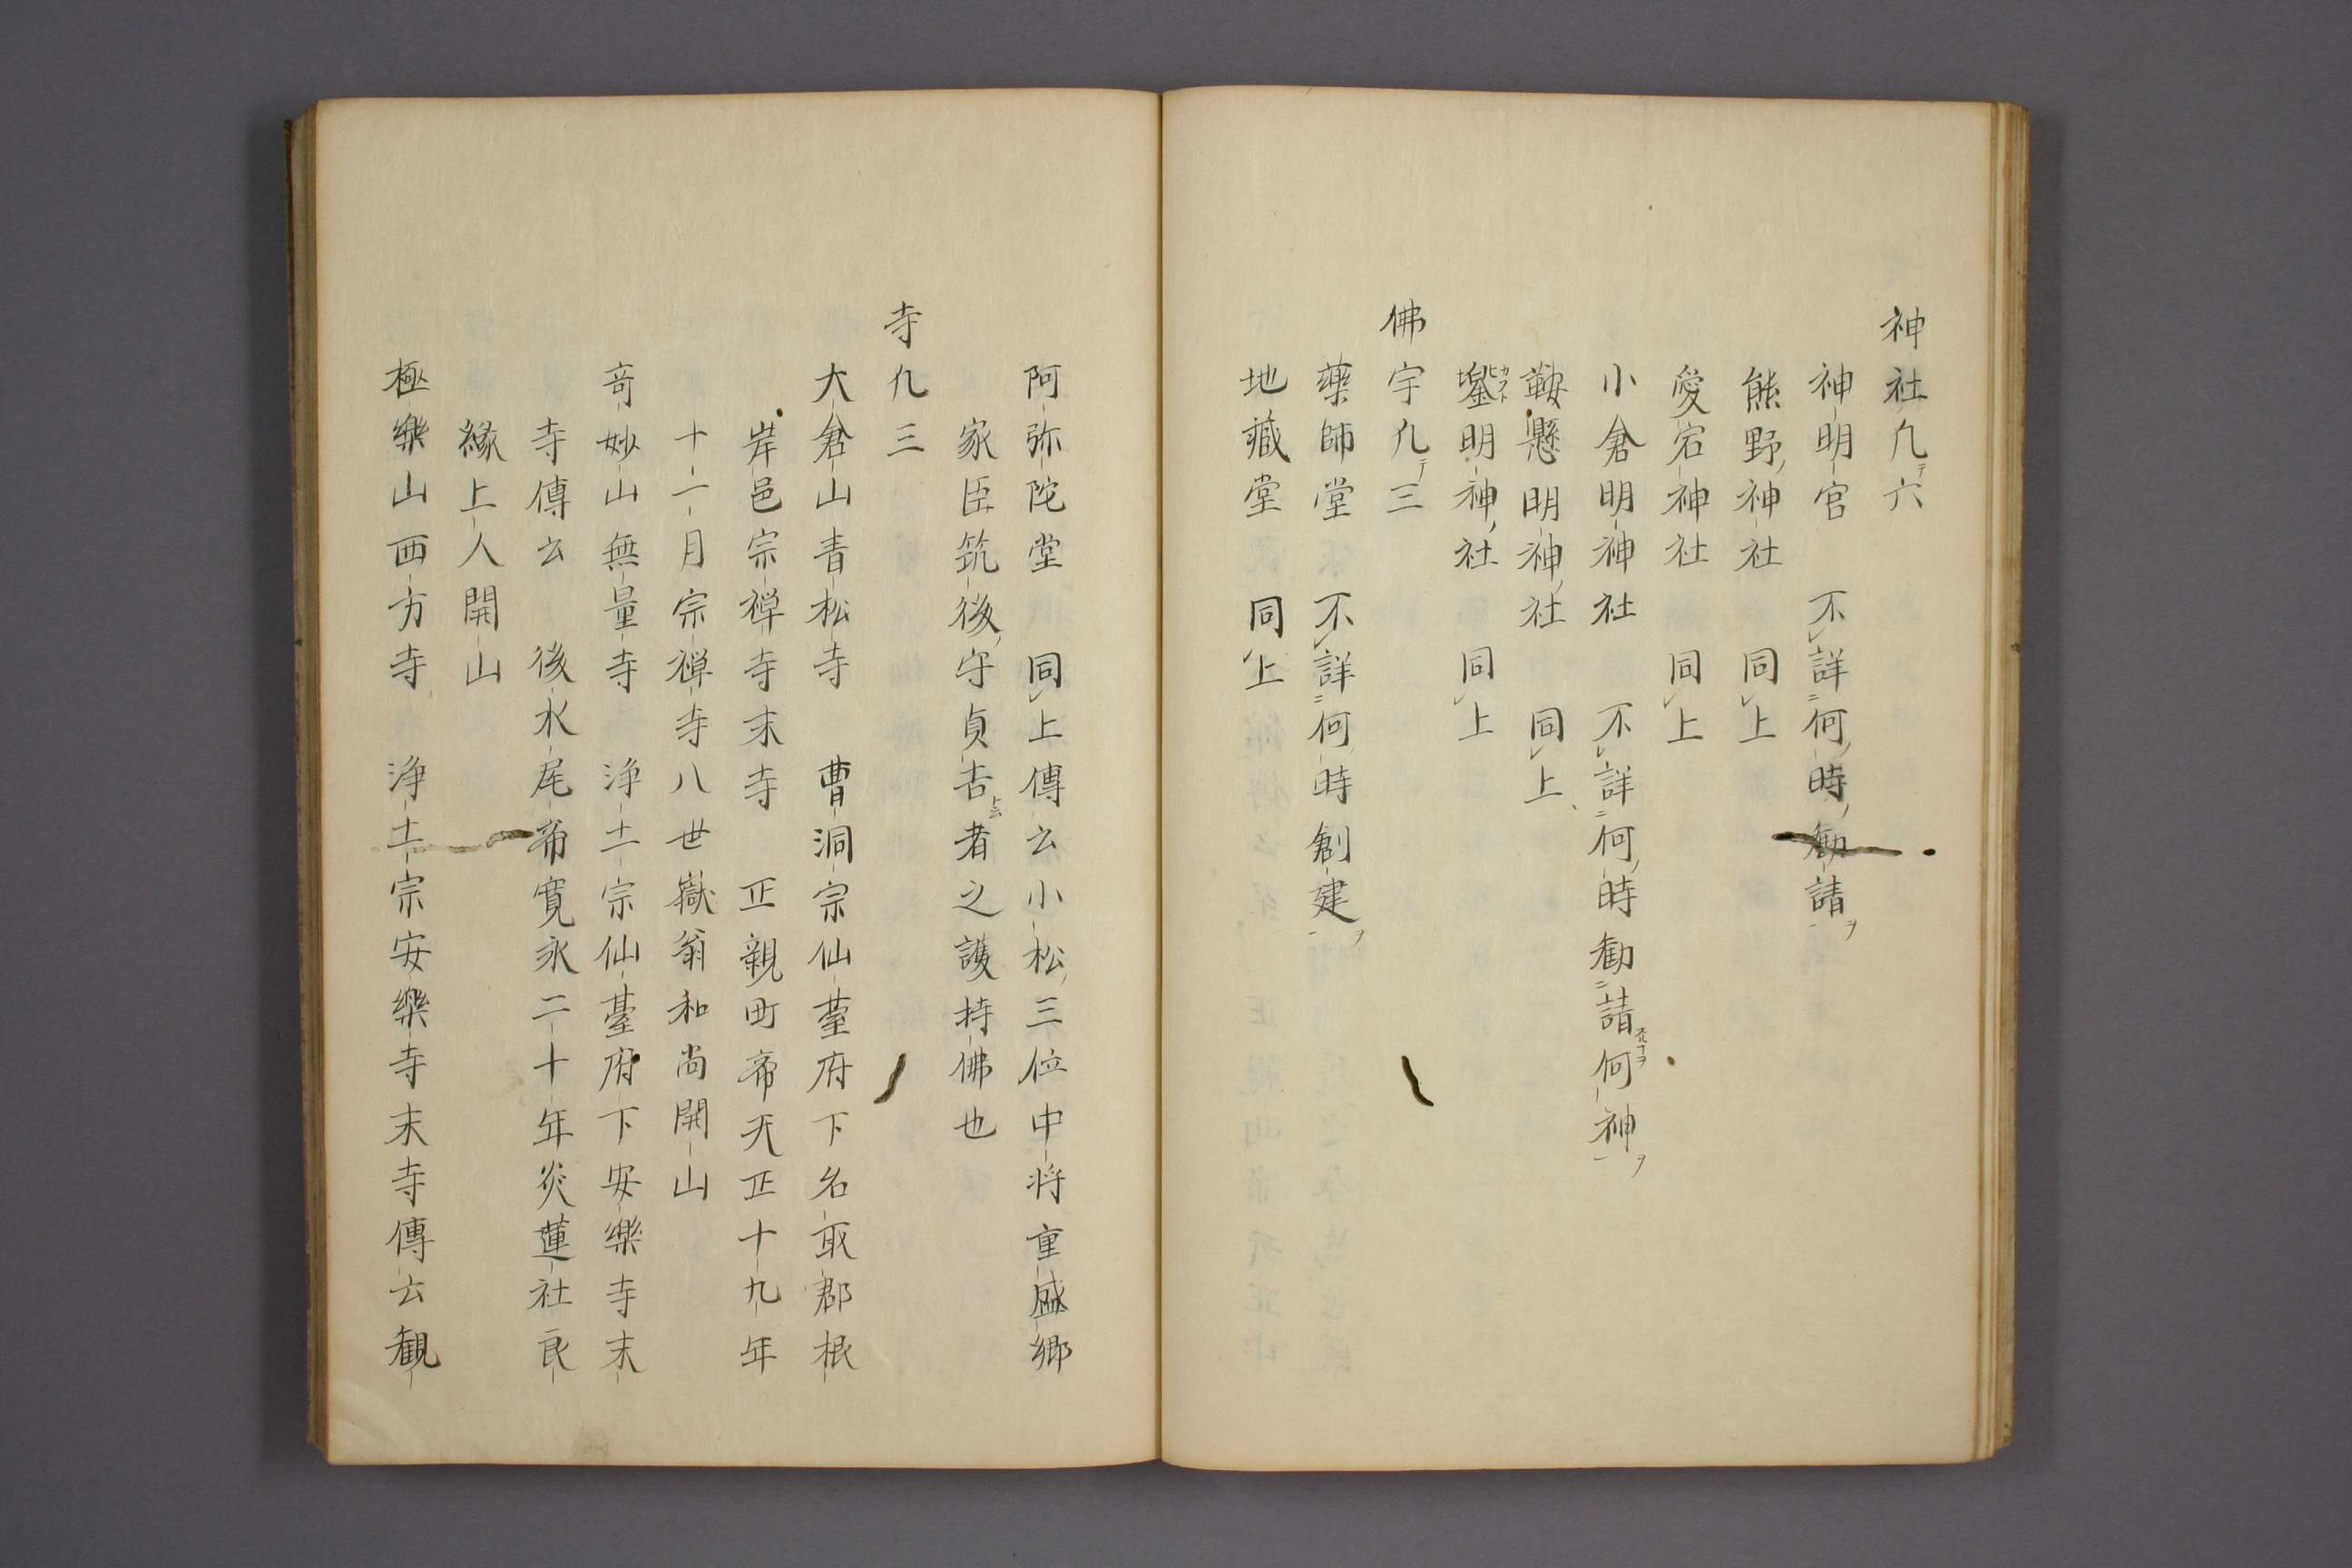 神社凡六
神明宮　不詳何時勧請
熊野神社　同上
愛宕神社　同上
小倉明神社　不詳何時勧請何神
鞍懸明神社　同上
明神社　同上
佛宇凡三
藥師堂　不詳何時創建
地藏堂　同上
阿弥陀堂　同上傳云小松三位中将重盛郷
家臣筑後守貞者之護持佛也
寺凡三
大倉山青松寺　曹洞宗仙臺府下名取郡根
岸邑宗禅寺末寺　正親町帝天正十九年
十一月宗禅寺八世嶽翁和尚開山
奇妙山無量寺　浄土宗仙臺府下安樂寺末
寺傳云　後水尾帝寛永二十年炎蓮社良
縁上人開山
極樂山西方寺　浄土宗安樂寺末寺傳云観